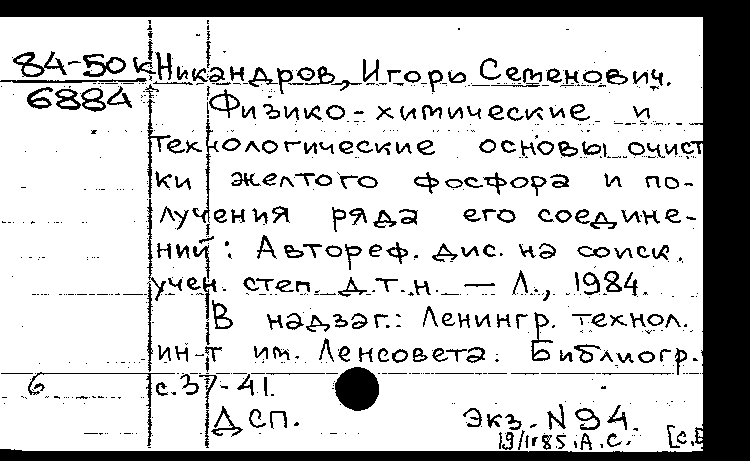 84-50к Никандров, Игорь Семенович.
6884 Физико-химические и
технологические основы очист
ки желтого фосфора и по-
лучения ряда его соедине-
ний: Автореф. дис. на соиск.
учен. степ. д.т.н. — Л., 1984.
В надзаг.: Ленингр. технол.
ин-т им. Ленсовета. Библиогр.
6 с.37-41.
ДСП. Экз. N 94.
А.С.